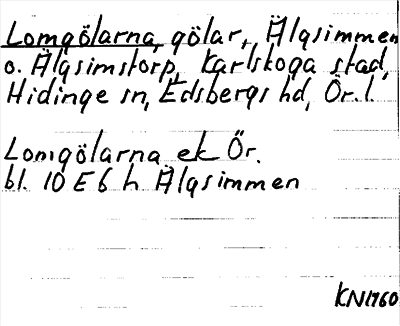 Lomgölarna, gölar, Älgsimmen
o. Älgsimstorp, Karlskoga stad,
Hidinge sn, Edsbergs hd, Ör. l.
Lomgölarna ek Ör.
bl. 10 E 6 h Älgsimmen
KN1760